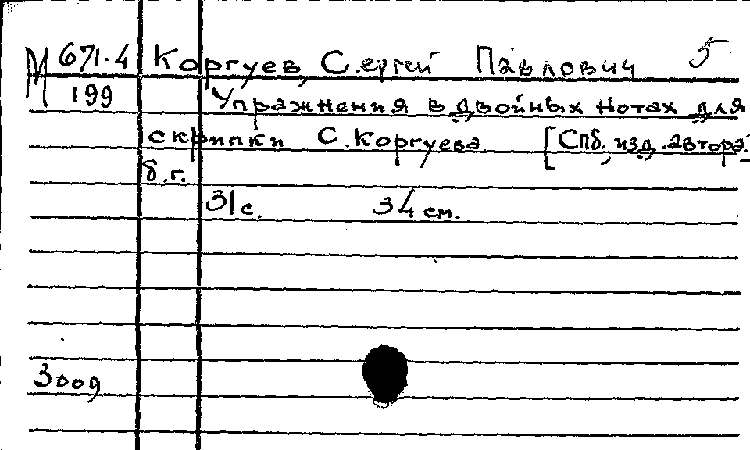 М 671.4 Коргуев, Сергей Павлович 5
199 Упражнения в двойных нотах для
скрипки С. Коргуева [Спб., изд. автора.]
б.г.
31 с. 34 см.
3009